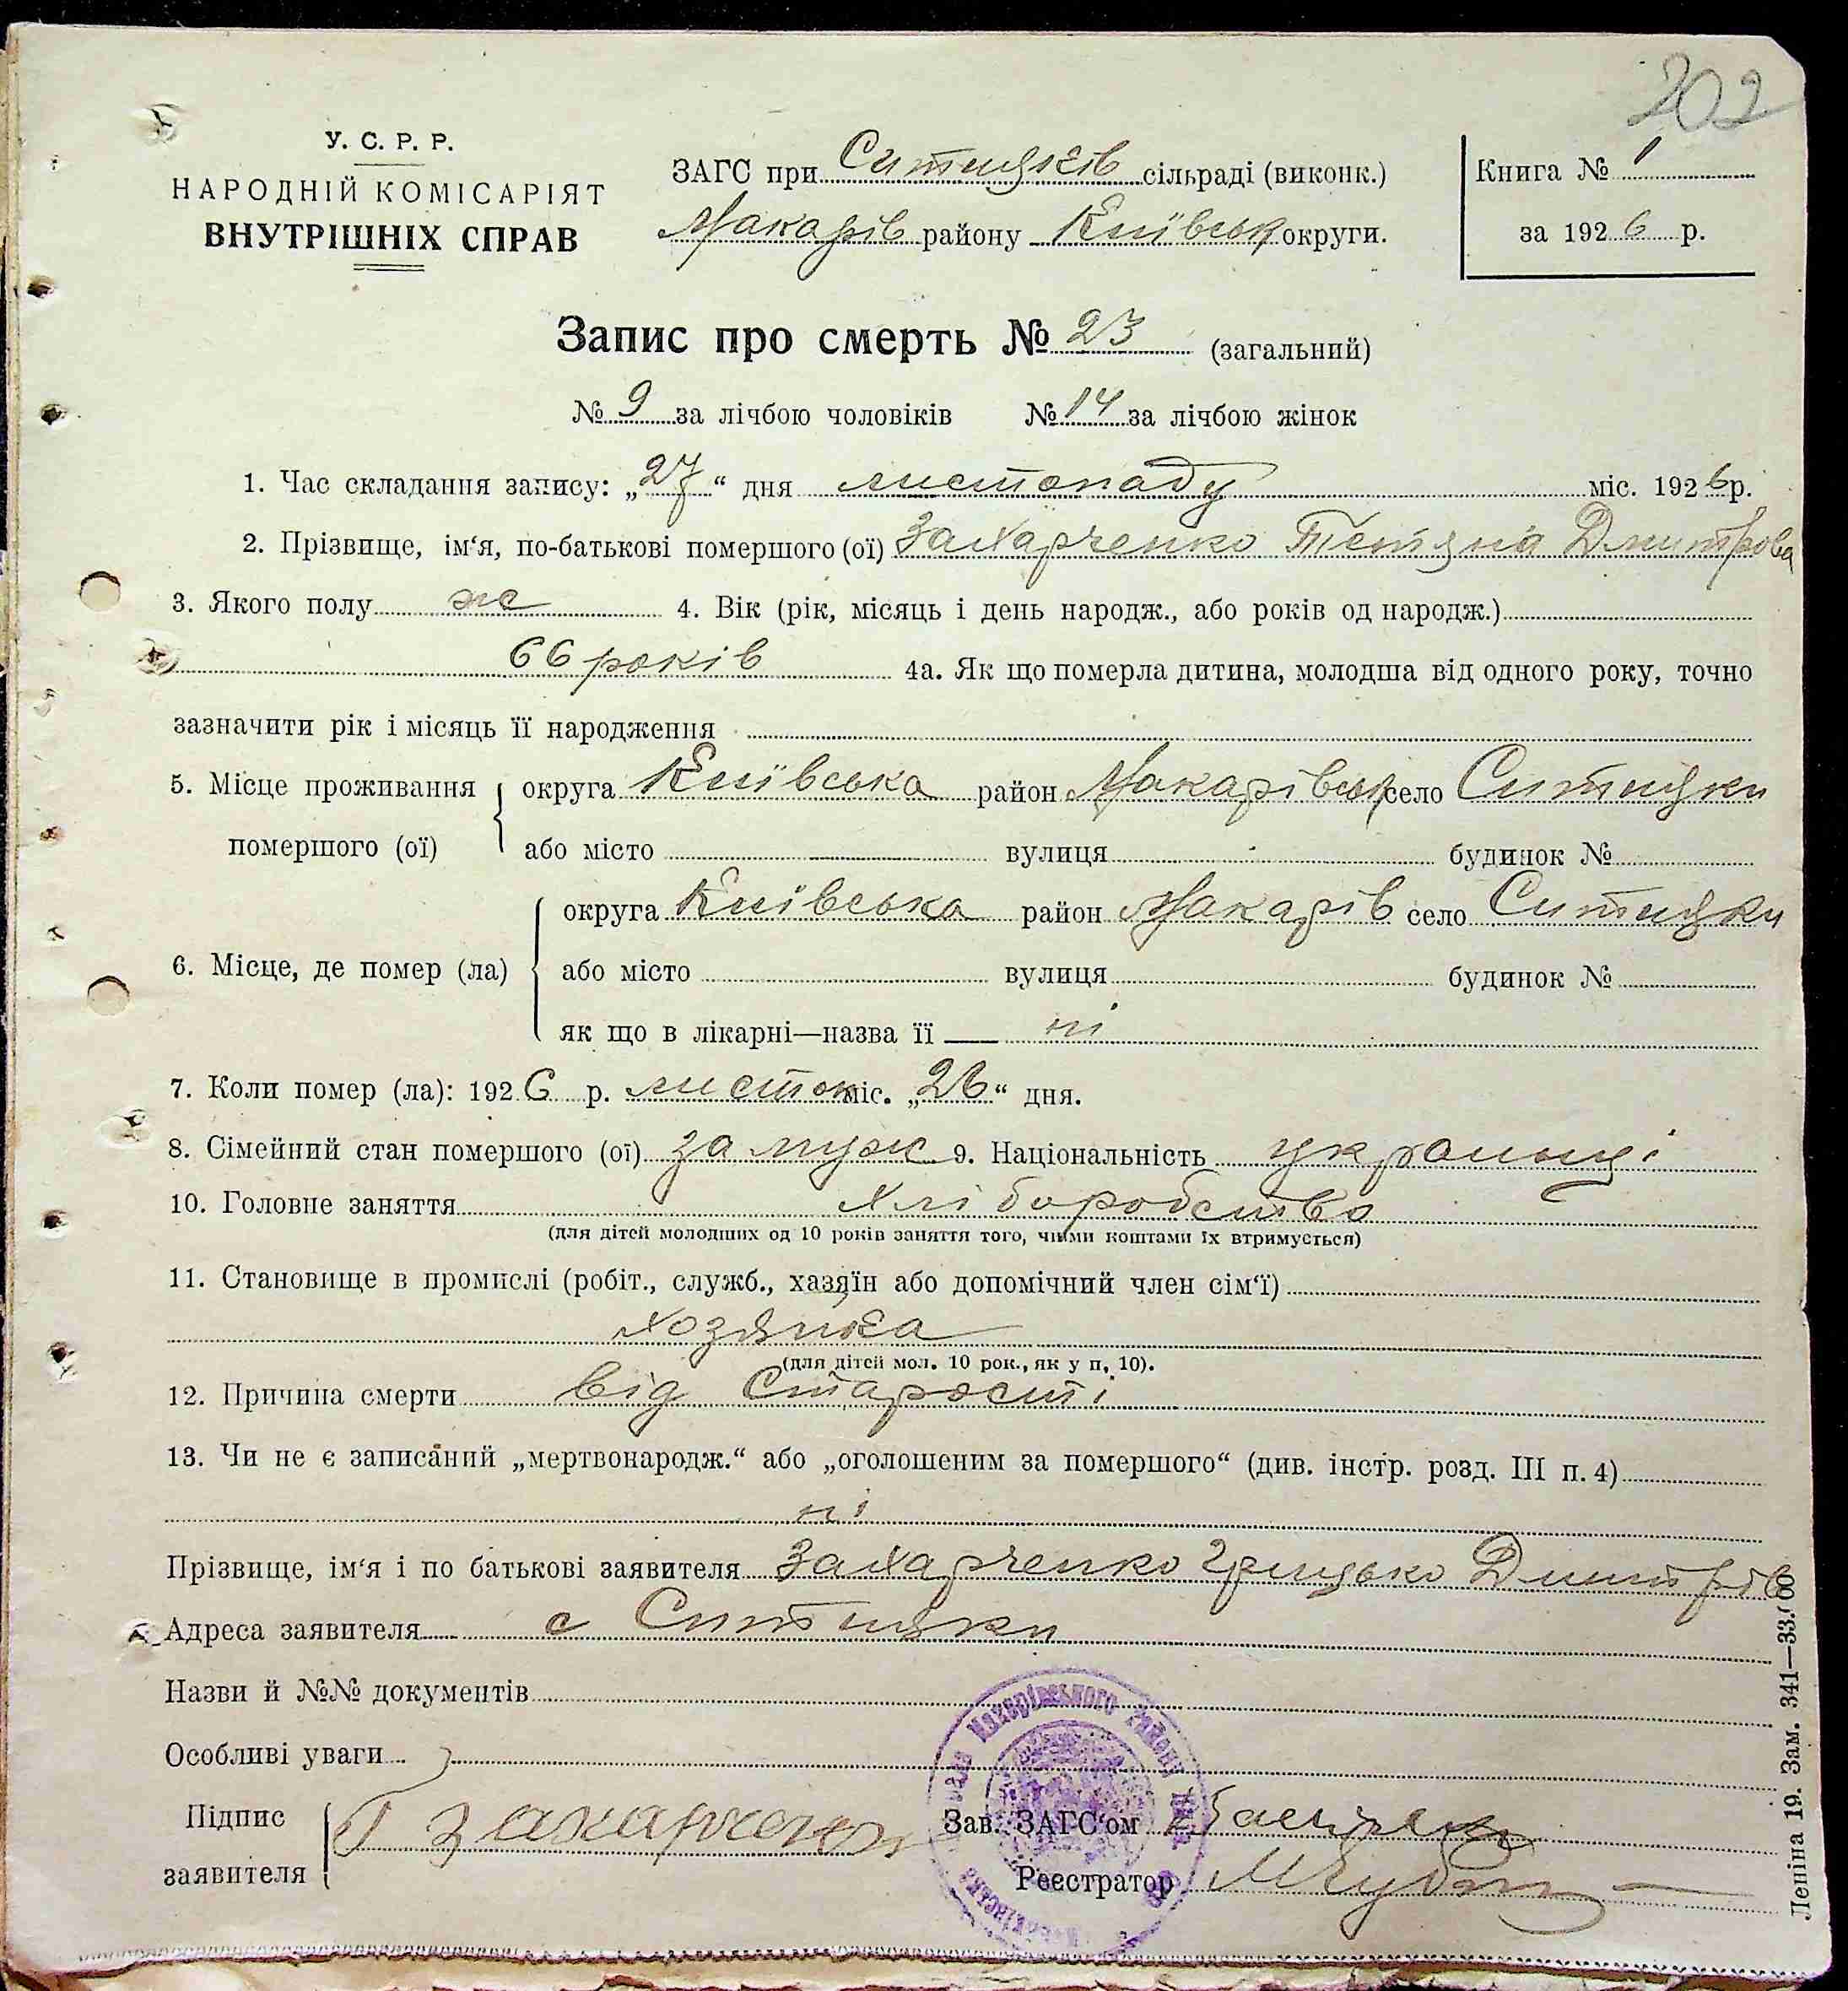 202
У. С. Р. Р.
НАРОДНІЙ КОМІСАРІЯТ
ВНУТРІШНІХ СПРАВ
ЗАГС при Ситняків сільраді (виконк.)
Макарів району Київськ округи.
Книга № 1
за 1926 р.
Запис про смерть № 23 (загальний)
№ 9 за лічбою чоловіків № 14 за лічбою жінок
1. Час складання запису: „27“ дня листопаду міс. 1926 р.
2. Прізвище, ім‘я, по-батькові помершого (ої) Захарченко Тетяна Дмитрова
3. Якого полу ж 4. Вік (рік, місяць і день народж., або років од народж.)
66 років 4а. Як що померла дитина, молодша від одного року, точно
зазначити рік і місяць її народження
5. Місце проживання округа Київська район Макарівськ село Ситняки
помершого (ої) або місто вулиця будинок №
округа Київська район Макарів село Ситняки
6. Місце, де помер (ла) або місто вулиця будинок №
як що в лікарні—назва її ні
7. Коли помер (ла): 1926 р. листоп міс. „26“ дня.
8. Сімейний стан помершого (ої) замуж 9. Національність
10. Головне заняття хліборобство
(для дітей молодших од 10 років заняття того, чиїми коштами їх втримується)
11. Становище в промислі (робіт., служб., хазяїн або допомічний член сім‘ї)
хозяйка
(для дітей мол. 10 рок., як у п. 10).
12. Причина смерти від старости
13. Чи не є записаний „мертвонародж.“ або „оголошеним за помершого“ (див. інстр. розд. III п. 4)
ні
Прізвище, ім‘я і по батькові заявителя Захарченко Грицько Дмитрів
Адреса заявителя с Ситняки
Назви й №№ документів
Особливі уваги
Підпис
заявителя Г Захарченко
Зав. ЗАГС‘ом
Реєстратор
Макарівського району
Леніна 19. Зам. 341—33.000